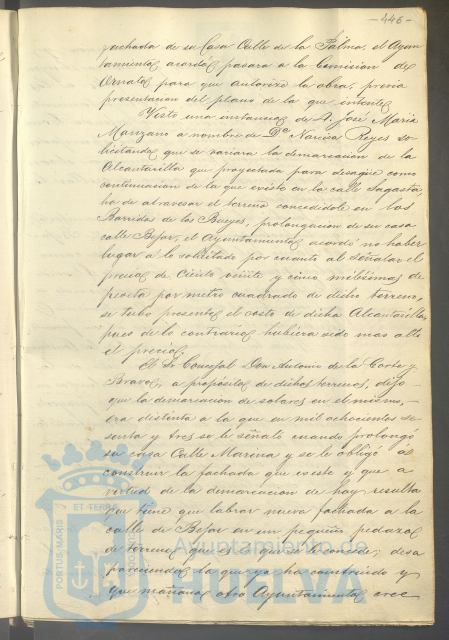 -446-
fachada de su Casa Calle de la Palma, el Ayun
tamiento acordó pasara a la Comision de
Ornato para que autorize la obra, previa
presentacion del plano de la que intente
Visto una instancia de D. José Maria
Manzano a nombre de Dª Narcisa Reyes so
licitando que se variara la demarcacion de la
Alcantarilla que proyectada para desague como
continuacion de la que existe en la calle Sagasta,
ha de atravesar el terreno concedidole en los
Barridos de los Bueyes, prolongacion de su casa
calle Bejar, el Ayuntamiento acordó no haber
lugar a lo solicitado por cuanto al señalar el
precio de Ciento veinte y cinco milésimas de
peseta por metro cuadrado de dicho terreno,
se tubo presente el costo de dicha Alcantarilla,
pues de lo contrario hubiera sido mas alto
el precio.
El Sr Concejal Don Antonio de la Corte y
Bravo, a proposito de dichos terrenos, dijo
que la demarcacion de solares en el mismo,
era distinta a la que en mil ochocientos se
senta y tres se le señaló cuando prolongó
su casa Calle Marina y se le obligó a
construir la fachada que existe y que a
virtud de la demarcacion de hoy resulta
que tiene que labrar nueva fachada a la
calle de Bejar en un pequeño pedazo
de terreno que es lo que se le concede, desa
pareciendo la que ya ha construido y
que mañana otro Ayuntamiento cree
PORTUS MARIS
ET TERRÆ
Ayuntamiento de
HUELVA